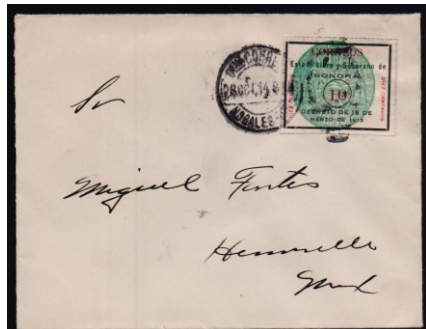 CORREOS
Estado Libre y Soberano de
SONORA
10
DECRETO DE 18 DE
MARZO DE 1913
NOGALES
Sr
Miguel Fontes
Hermosillo